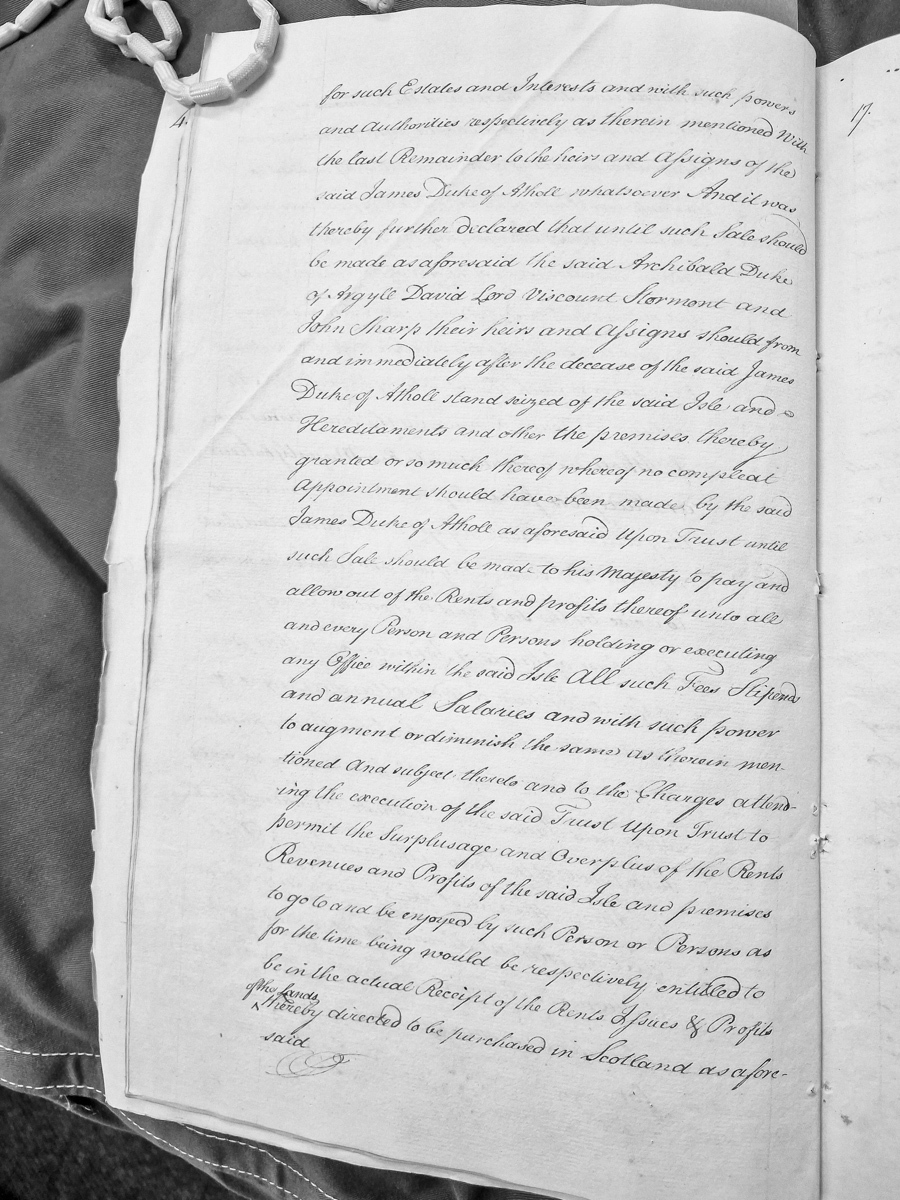 4.
17.
for such Estates and Interests and with such powers
and Authorities respectively as therein mentioned With
the last Remainder to the heirs and Assigns of the
said James Duke of Atholl whatsoever And it was
thereby further declared that until such Sale should
be made as aforesaid the said Archibald Duke
of Argyll David Lord Viscount Stormont and
John Sharp their heirs and Assigns should from
and immediately after the decease of the said James
Duke of Atholl stand seized of the said Isle and
Hereditaments and other the premises thereby
granted or so much thereof whereof no compleat
Appointment should have been made by the said
James Duke of Atholl as aforesaid Upon Trust until
such Sale should be made to his Majesty to pay and
allow out of the Rents and profits thereof unto all
and every Person and Persons holding or executing
any Office within the said Isle All such Fees Stipends
and annual Salaries and with such power
to augment or diminish the same as therein men-
tioned And subject thereto and to the Charges attend-
ing the execution of the said Trust Upon Trust to
permit the Surplusage and Overplus of the Rents
Revenues and Profits of the said Isle and premises
to go to and be enjoyed by such Person or Persons as
for the time being would be respectively entitled to
be in the actual Receipt of the Rents Issues & Profits
of the Lands
thereby directed to be purchased in Scotland as afore-
said